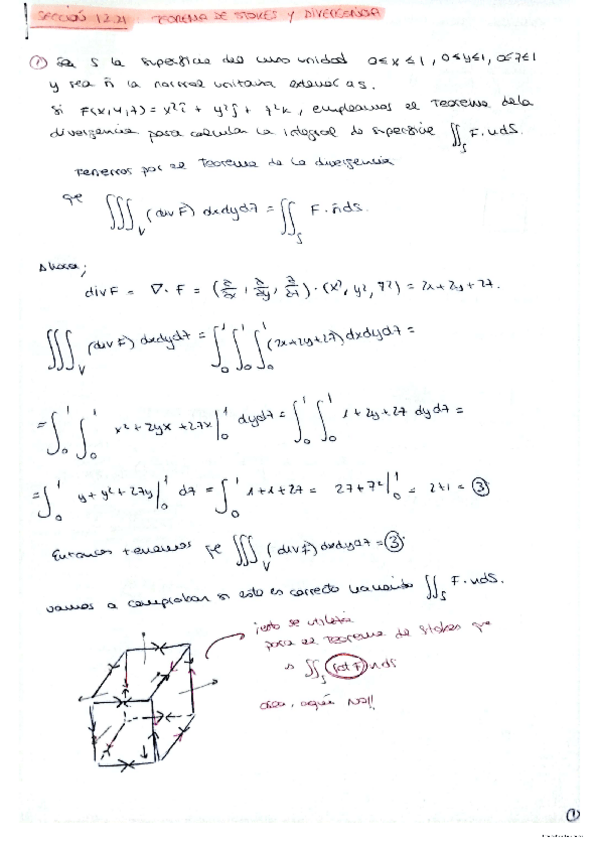 SECCIÓN 12.21 TEOREMA DE STOKES Y DIVERGENCIA
① Sea S la superficie del cubo unidad 0≤x≤1, 0≤y≤1, 0≤z≤1
y sea n̂ la normal unitaria exterior a S.
Si F(x,y,z) = x²î + y²ĵ + z²k, empleamos el Teorema de la
divergencia para calcular la integral de superficie ∬_S F·ndS.
Tenemos por el Teorema de la divergencia
que
∭_V (div F) dxdydz = ∬_S F·n̂ds.
Ahora;
divF = ∇·F = (∂/∂x, ∂/∂y, ∂/∂z)·(x², y², z²) = 2x+2y+2z.
∭_V (div F) dxdydz = ∫_0^1 ∫_0^1 ∫_0^1 (2x+2y+2z)dxdydz =
= ∫_0^1 ∫_0^1 x²+2yx+2zx|_0^1 dydz = ∫_0^1 ∫_0^1 1+2y+2z dydz =
= ∫_0^1 y+y²+2zy|_0^1 dz = ∫_0^1 1+1+2z = 2z+z²|_0^1 = 2+1 = ③
Entonces tenemos que ∭_V (div F)dxdydz = ③.
vamos a comprobar si esto es correcto haciendo ∬_S F·ndS.
¡esto se utiliza
para el Teorema de Stokes que
es ∬_S (rot F) nds
aquí NO!!
①